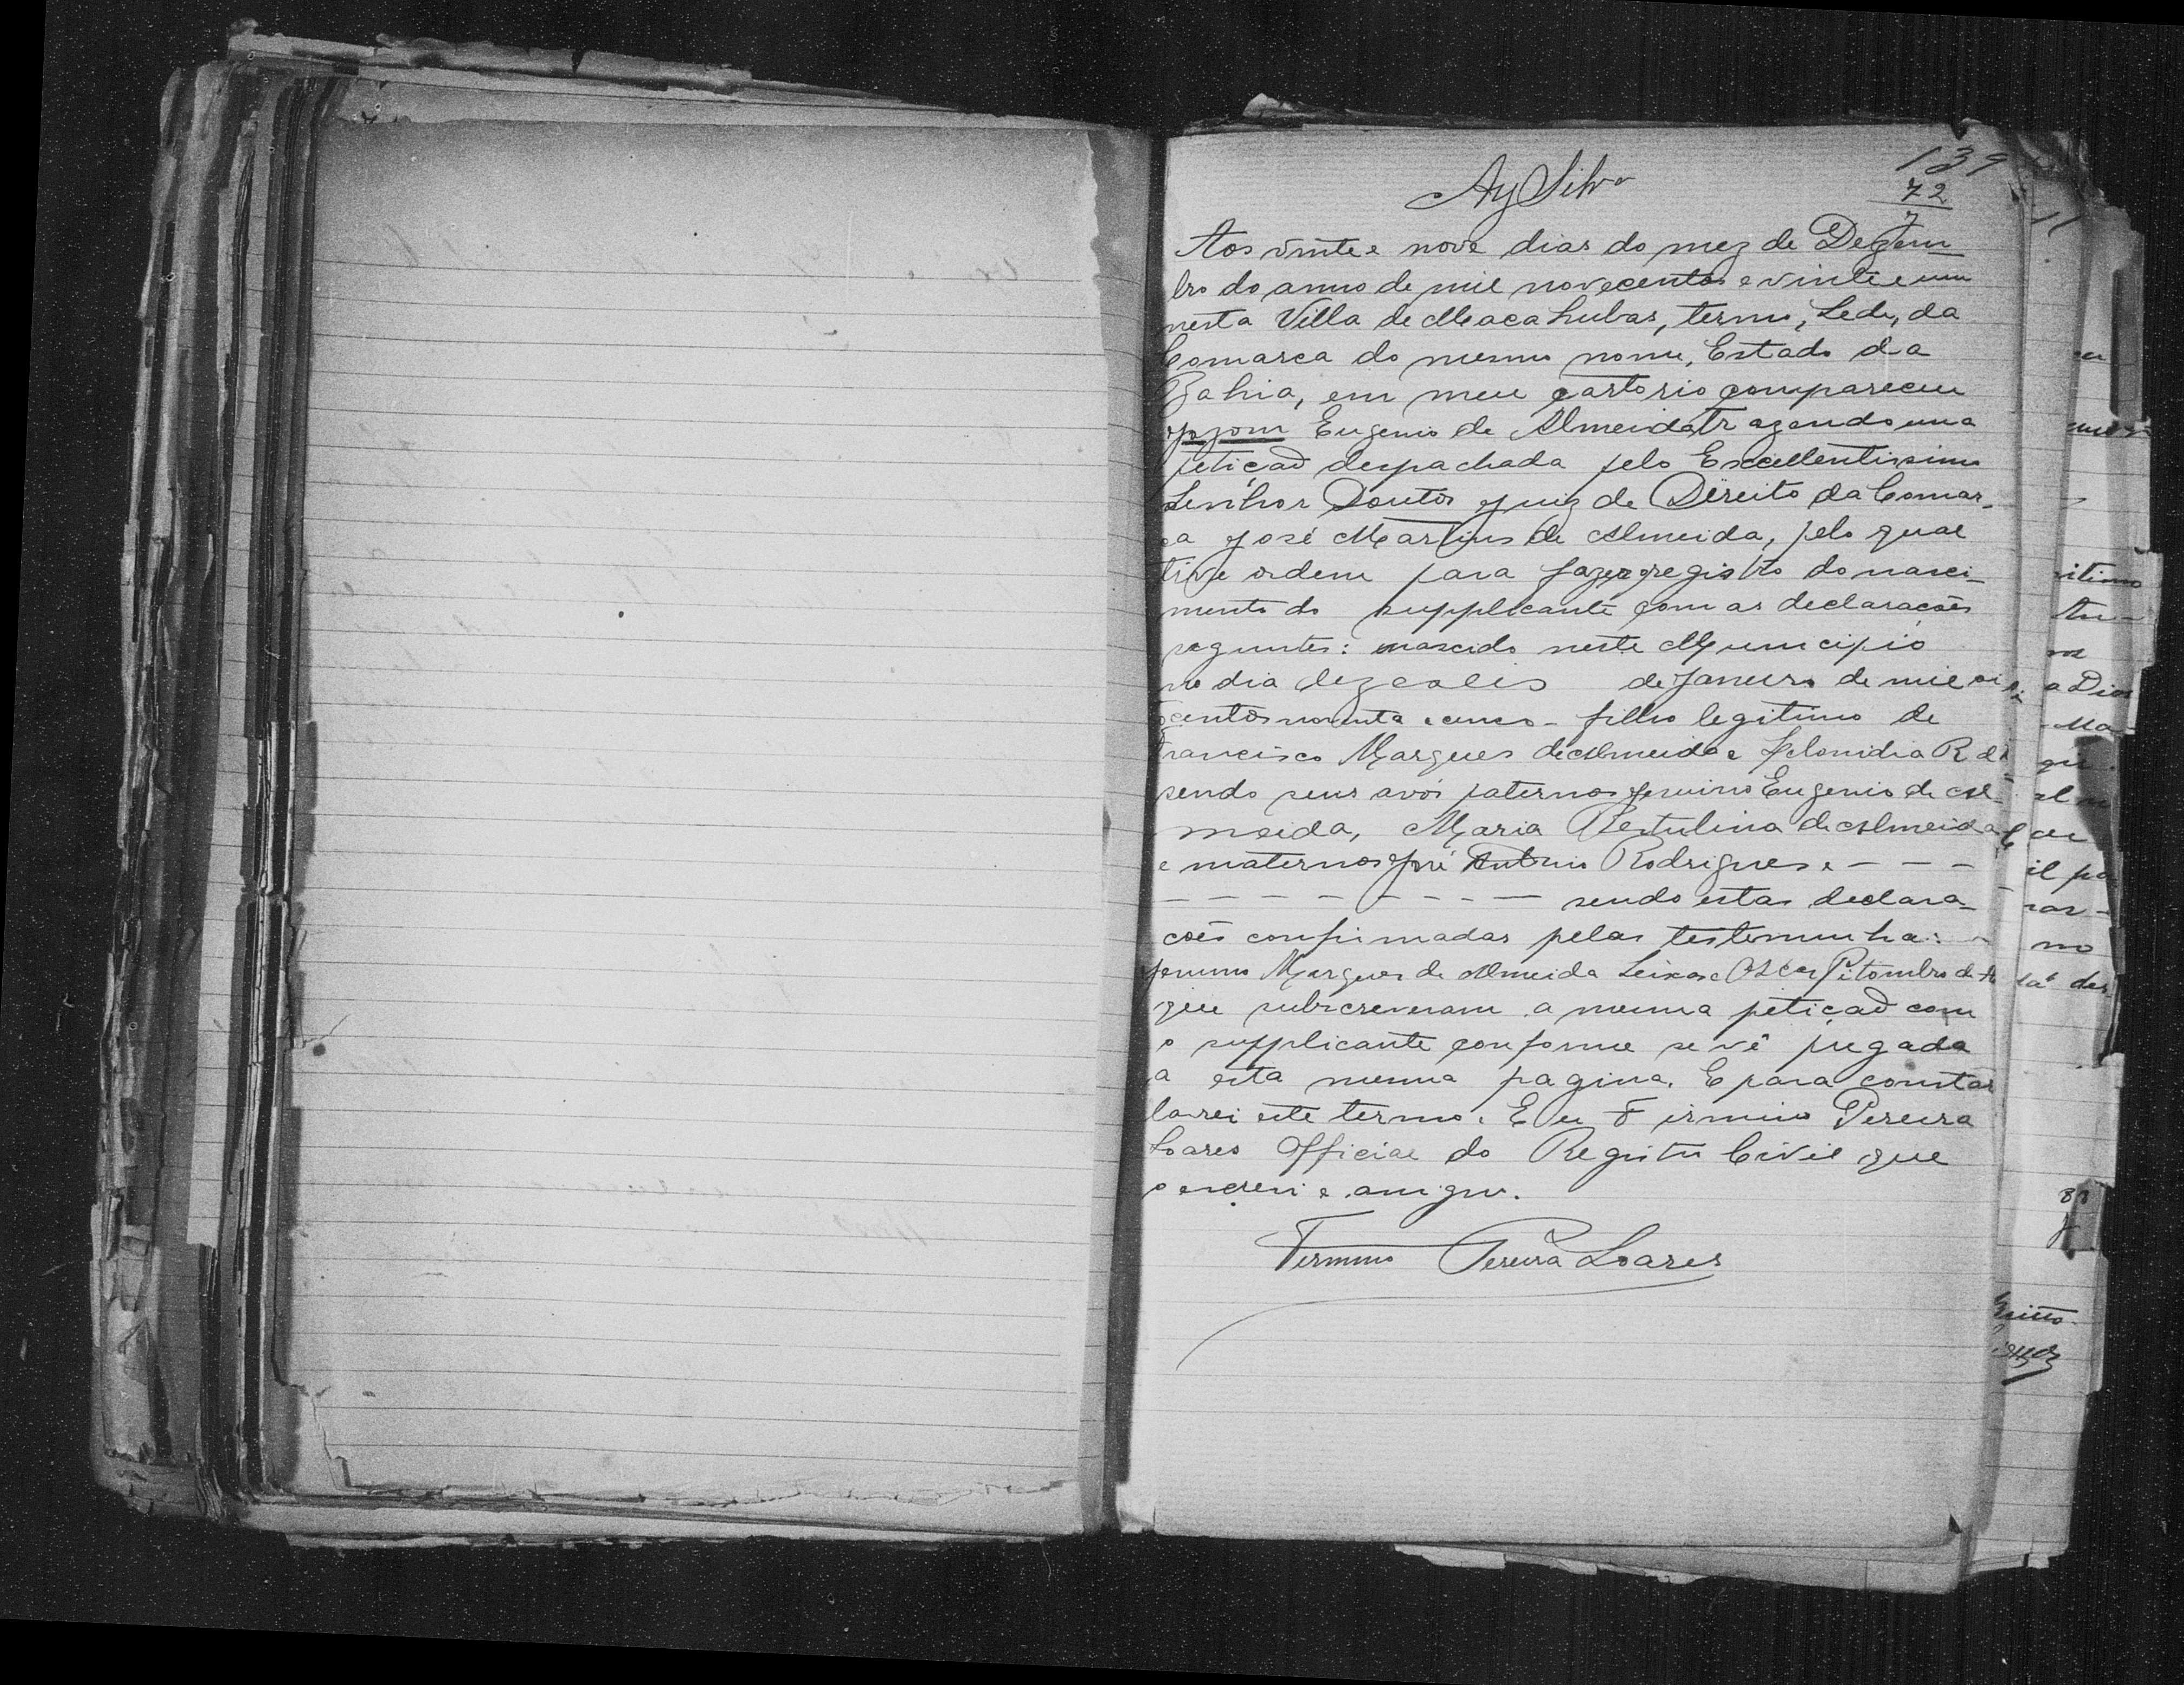 139
Ay Silva
72
Aos vinte e nove dias do mez de Dezem-
bro do anno de mil novecentos e vinte e um
nesta Villa de Macahubas, termo, Sede, da
Comarca do mesmo nome, Estado da
Bahia, em meu cartorio compareceu
Eugenio de Almeida trazendo uma
petição despachada pelo Excellentissimo
Senhor Doutor Juiz de Direito da Comar-
ca José Martins de Almeida, pelo qual
tive ordem para fazer o registro do nasci-
mento do supplicante com as declarações
seguintes: nascido neste Municipio
no dia dezeseis de Janeiro de mil oi
centos noventa e cinco - filho legitimo de
Francisco Marques de Almeida e R de
sendo seus avós paternos Eugenio de Al-
meida, Maria de Almeida
e maternos José Antonio Rodrigues e - - -
- - - - - - - - - sendo estas declara-
ções confirmadas pelas testemunha:
Marques de Almeida Seixas e Oscar Pitombo de
que subscreveram a mesma petição com
o supplicante conforme se vê pregada
a esta mesma pagina. E para constar
lavrei este termo. Eu Firmino Pereira
Soares Official do Registro Civil que
o escrevi e assigno.
Firmino Pereira Soares